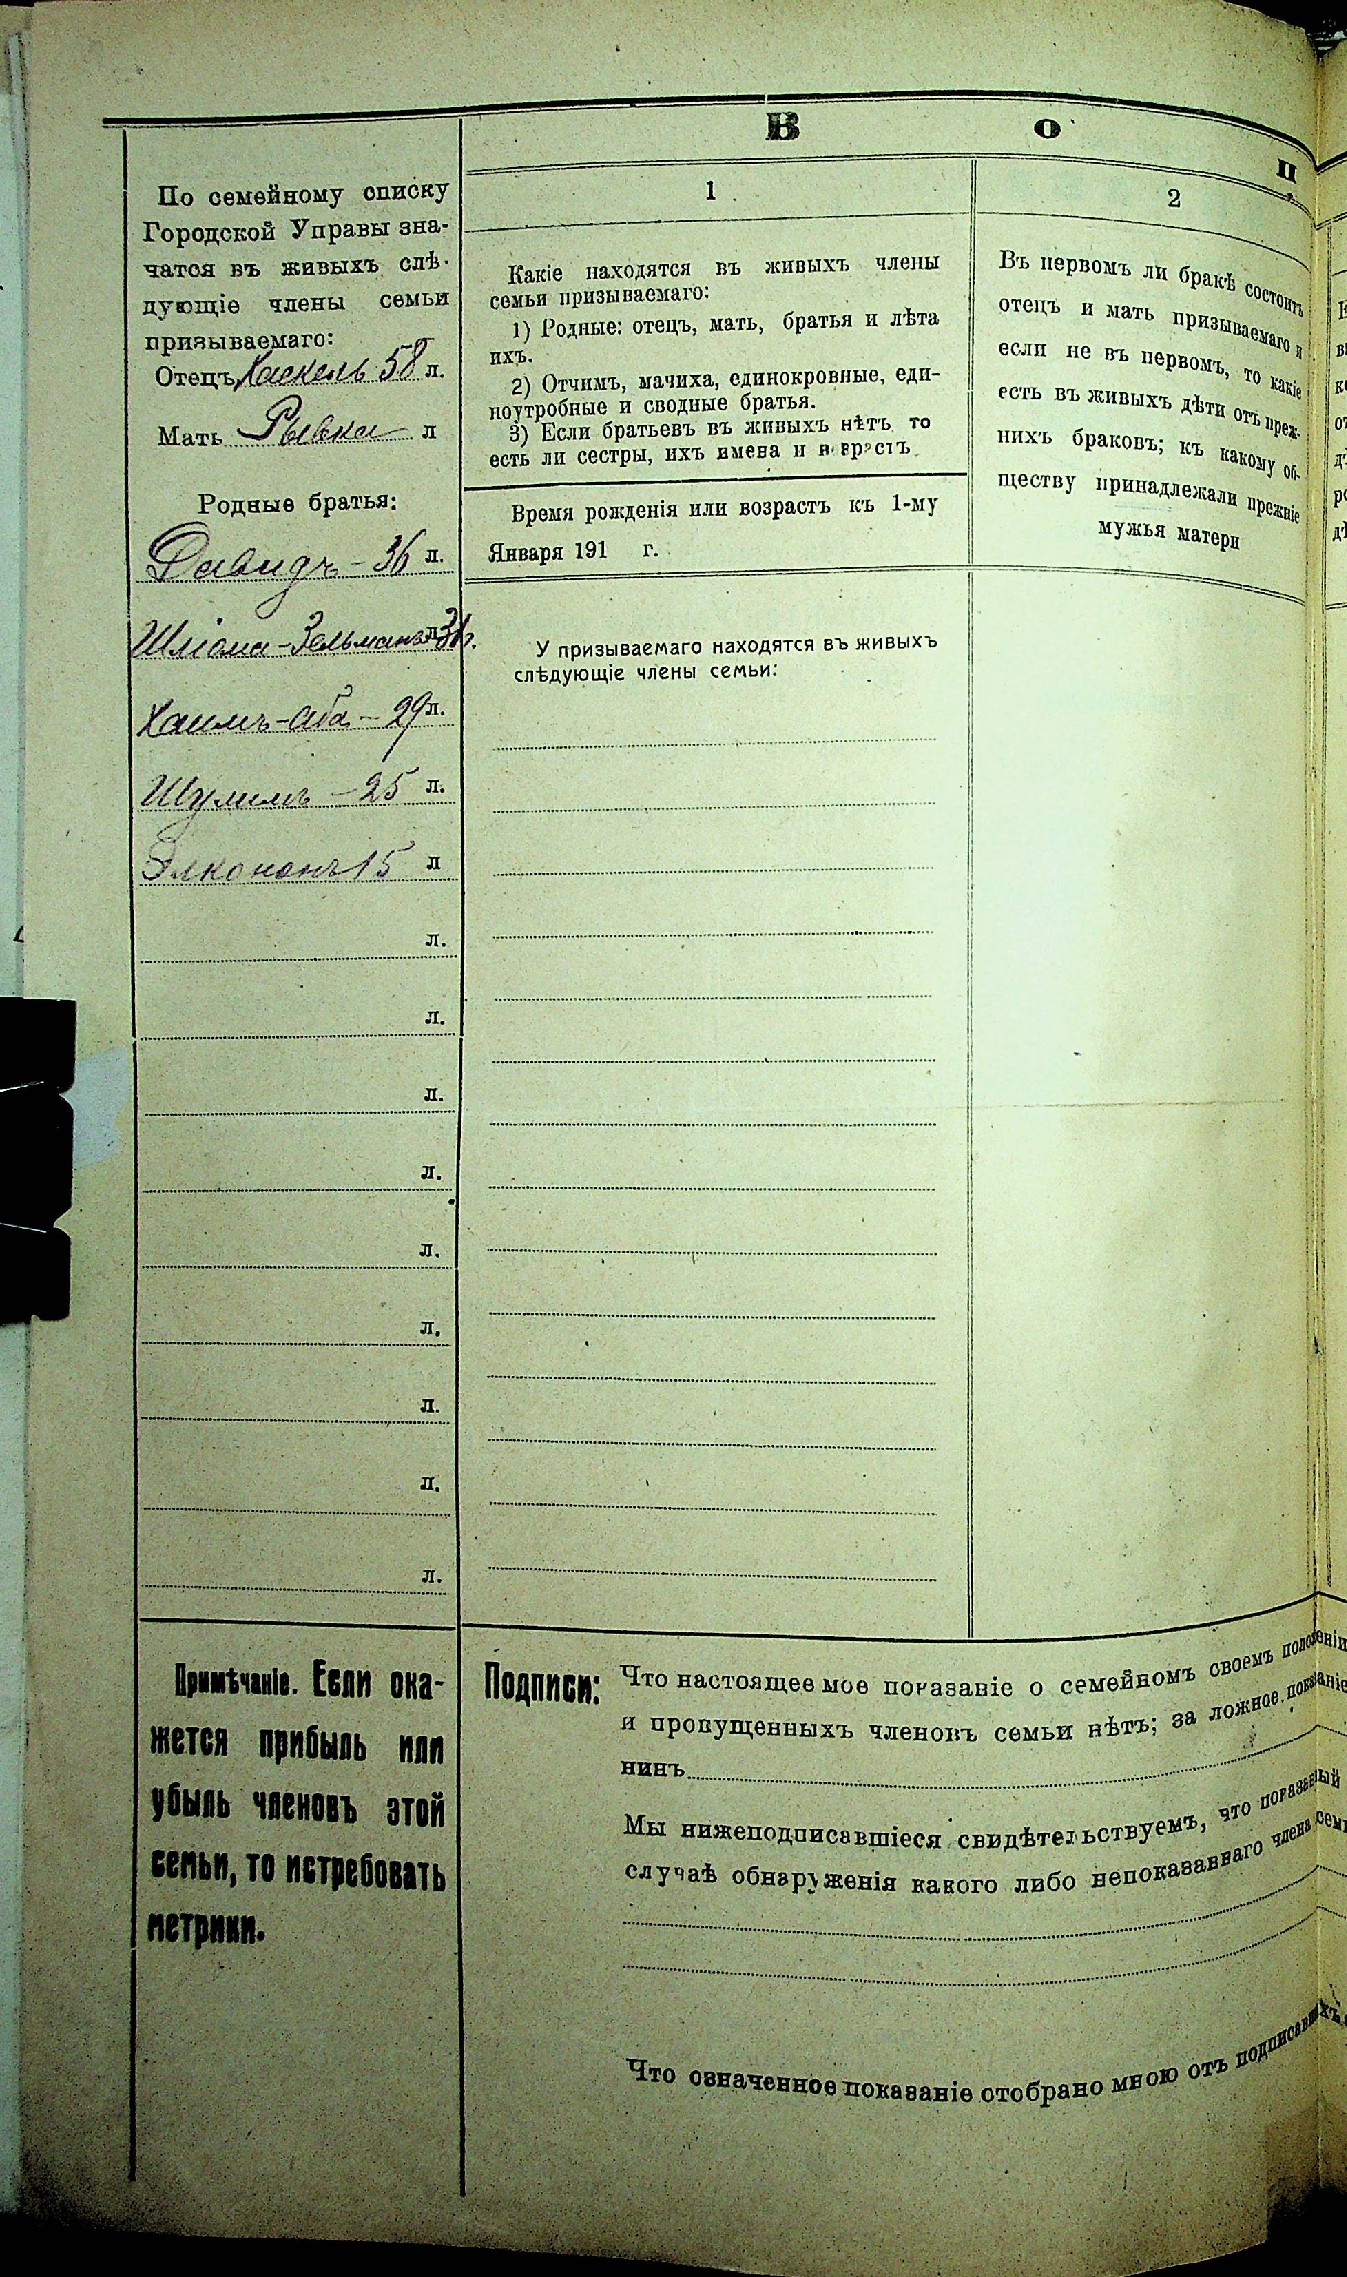 В о п
По семейному списку
Городской Управы зна-
чатся въ живыхъ слѣ-
дующіе члены семьи
призываемаго:
Отецъ Хаскель 58 л.
Мать Рывка л
Родные братья:
Давидъ - 36 л.
Шліома-Зельманъ л.
Хаимъ-Аба - 29 л.
Шулимъ - 25 л.
Элкононъ 15 л
л.
л.
л.
л.
л.
л.
л.
л.
л.
Примѣчаніе. Если ока-
жется прибыль или
убыль членовъ этой
семьи, то истребовать
метрики.
1
Какіе находятся въ живыхъ члены
семьи призываемаго:
1) Родные: отецъ, мать, братья и лѣта
ихъ.
2) Отчимъ, мачиха, единокровные, еди-
ноутробные и сводные братья.
3) Если братьевъ въ живыхъ нѣтъ то
есть ли сестры, ихъ имена и возрастъ
Время рожденія или возрастъ къ 1-му
Января 191 г.
У призываемаго находятся въ живыхъ
слѣдующіе члены семьи:
2
Въ первомъ ли бракѣ состоитъ
отецъ и мать призываемаго и
если не въ первомъ, то какіе
есть въ живыхъ дѣти отъ преж-
нихъ браковъ; къ какому об-
ществу принадлежали прежніе
мужья матери
Подписи: Что настоящее мое показаніе о семейномъ своемъ положеніи
и пропущенныхъ членовъ семьи нѣтъ; за ложное показаніе
нинъ
Мы нижеподписавшіеся свидѣтельствуемъ, что показанный
случаѣ обнаруженія какого либо непоказаннаго члена семь
Что означенное показаніе отобрано мною отъ подписавшихъ